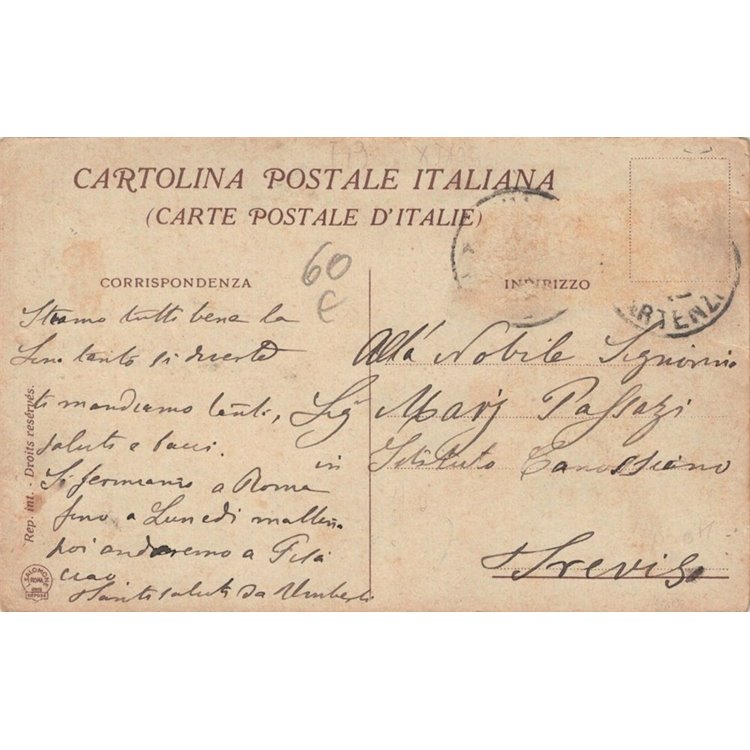 CARTOLINA POSTALE ITALIANA
(CARTE POSTALE D'ITALIE)
60
€
CORRISPONDENZA
Stiamo tutti bene la
tanto si diverte
ti mandiamo tanti
saluti e bacci.
Si fermiamo a Roma
fino a Lunedi mattina
poi anderemo a Pisa
ciao
Tanti saluti da Umberto
INDIRIZZO
Alla Nobile Signorina
Sig Mary
in Istituto Canossiano
Treviso
ARTENZ
Rep. int. - Droits resérvés.
SALOMONE
ROMA